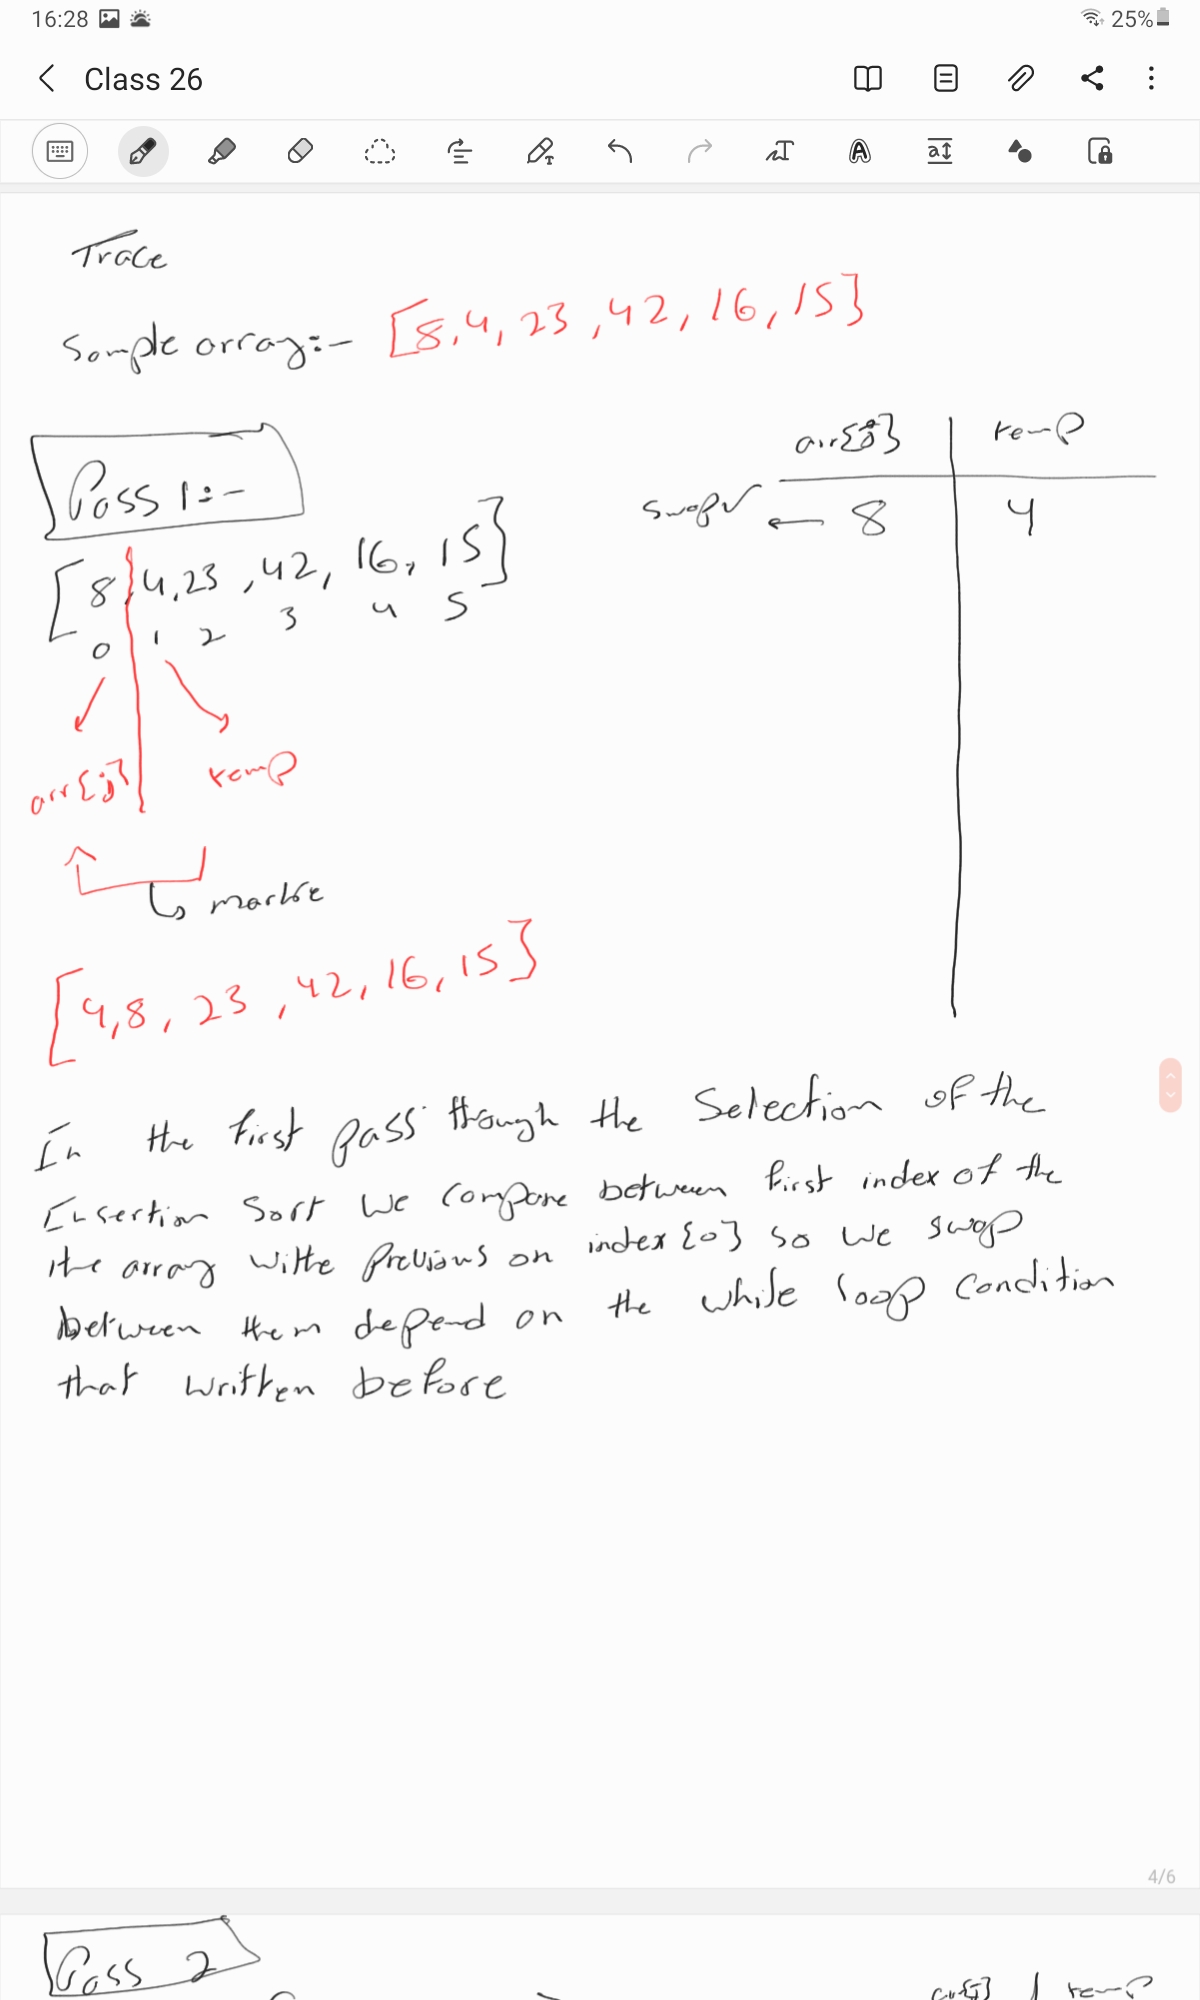 16:28 25%
Class 26
Trace
Sample array:- [8,4,23,42,16,15]
arr[j] temp
Pass 1:-
swap ✓ ← 8 4
[8,4,23,42,16,15]
0 1 2 3 4 5
arr[j] temp
[4,8,23,42,16,15]
In the first pass though the Selection of the
Insertion Sort we compare between first index of the
the array withe previous on index [0] so we swap
between them depend on the while loop condition
that written before
4/6
Pass 2
arr[j] temp